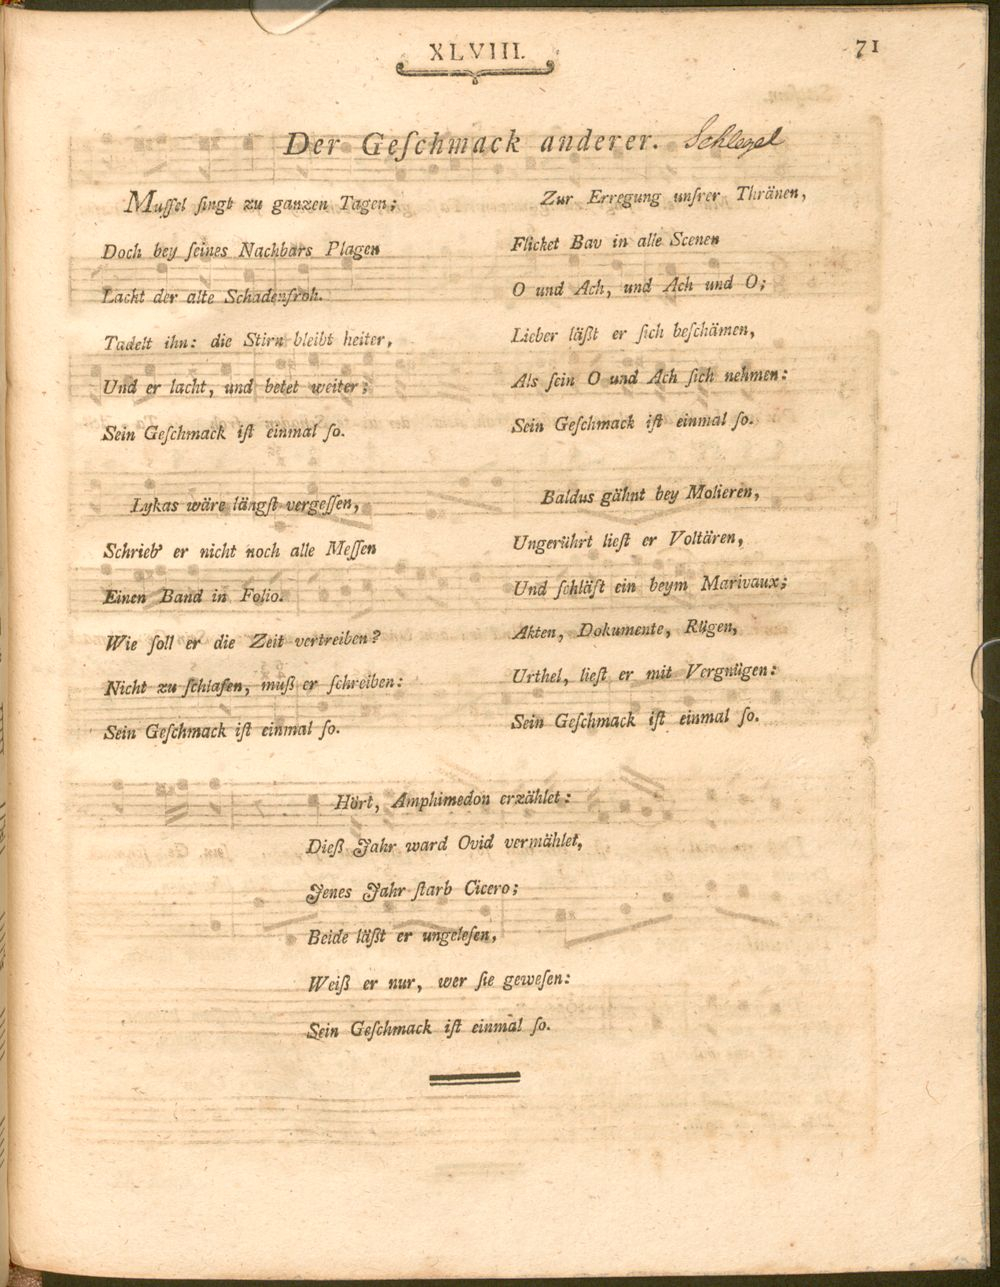 XLVIII.
71
Der Geſchmack anderer. Schlegel
Muffel ſingt zu ganzen Tagen;
Doch bey ſeines Nachbars Plagen
Lacht der alte Schadenfroh.
Tadelt ihn: die Stirn bleibt heiter,
Und er lacht, und betet weiter;
Sein Geſchmack iſt einmal ſo.
Lykas wäre längſt vergeſſen,
Schrieb' er nicht noch alle Meſſen
Einen Band in Folio.
Wie ſoll er die Zeit vertreiben?
Nicht zu ſchlafen, muß er ſchreiben:
Sein Geſchmack iſt einmal ſo.
Zur Erregung unſrer Thränen,
Flicket Bav in alle Scenen
O und Ach, und Ach und O;
Lieber läßt er ſich beſchämen,
Als ſein O und Ach ſich nehmen:
Sein Geſchmack iſt einmal ſo.
Baldus gähnt bey Molieren,
Ungerührt lieſt er Voltären,
Und ſchläft ein beym Marivaux;
Akten, Dokumente, Rügen,
Urthel, lieſt er mit Vergnügen:
Sein Geſchmack iſt einmal ſo.
Hört, Amphimedon erzählet:
Dieß Jahr ward Ovid vermählet,
Jenes Jahr ſtarb Cicero;
Beide läßt er ungeleſen,
Weiß er nur, wer ſie geweſen:
Sein Geſchmack iſt einmal ſo.